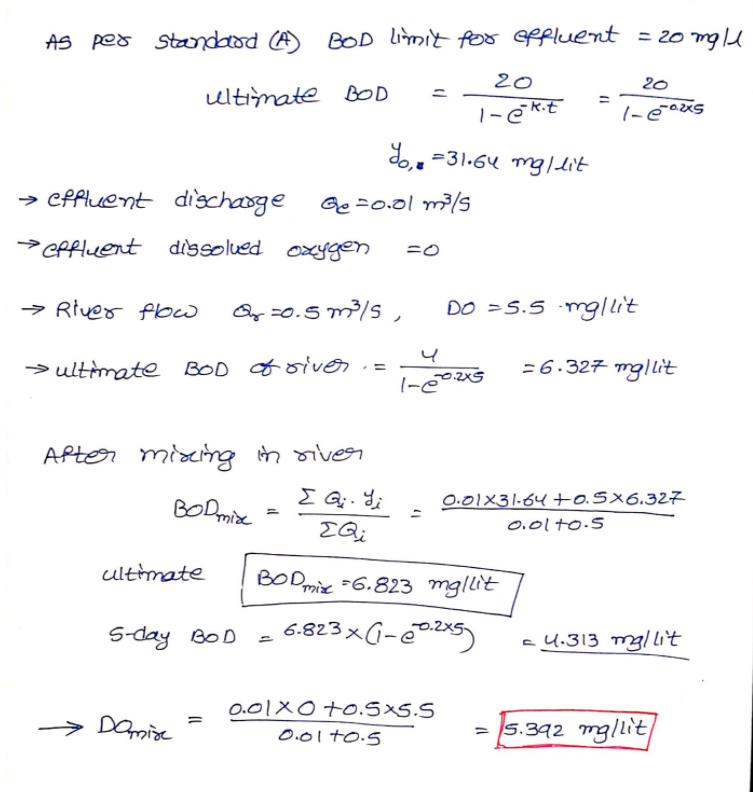 As per standard (A) BOD limit for effluent = 20 mg/l
ultimate BOD = 20 / 1-e^-k.t = 20 / 1-e^-0.2x5
y₀, = 31.64 mg/lit
→ effluent discharge Qe = 0.01 m³/s
→ effluent dissolved oxygen = 0
→ River flow Qr = 0.5 m³/s, DO = 5.5 mg/lit
→ ultimate BOD of river = 4 / 1-e^-0.2x5 = 6.327 mg/lit
After mixing in river
BODmix = Σ Qi. yi / ΣQi = 0.01x31.64 + 0.5x6.327 / 0.01+0.5
ultimate BODmix = 6.823 mg/lit
5-day BOD = 6.823 x (1-e^-0.2x5) = 4.313 mg/lit
→ DOmix = 0.01x0 + 0.5x5.5 / 0.01+0.5 = 5.392 mg/lit